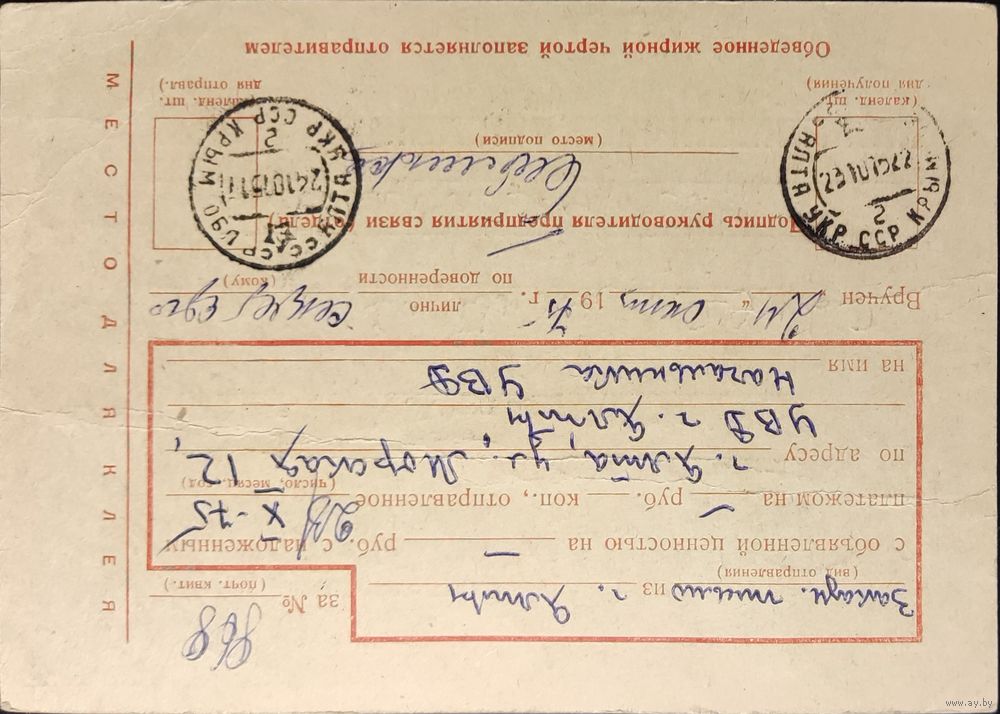 Заказн. письмо из г. Ялты за № 868
(вид отправления) (почт. квит.)
с объявленной ценностью на — руб. с наложенным
платежом на — руб. коп., отправленное 23/X-75
(число, месяц, год)
по адресу г. Ялта, ул. Морская 12,
УВД г. Ялты
на имя Начальника УВД
Вручен 24 " окт 19 75 г. лично
по доверенности (кому)
Подпись руководителя предприятия связи (отдела)
(место подписи)
(календ. шт. дня получения)
(календ. шт. дня отправл.)
ЯЛТА УКР ССР КРЫМ
23107522
2
СССР ЯЛТА УКР ССР КРЫМ
2
Обведенное жирной чертой заполняется отправителем
МЕСТО ДЛЯ КЛЕЯ
www.ay.by